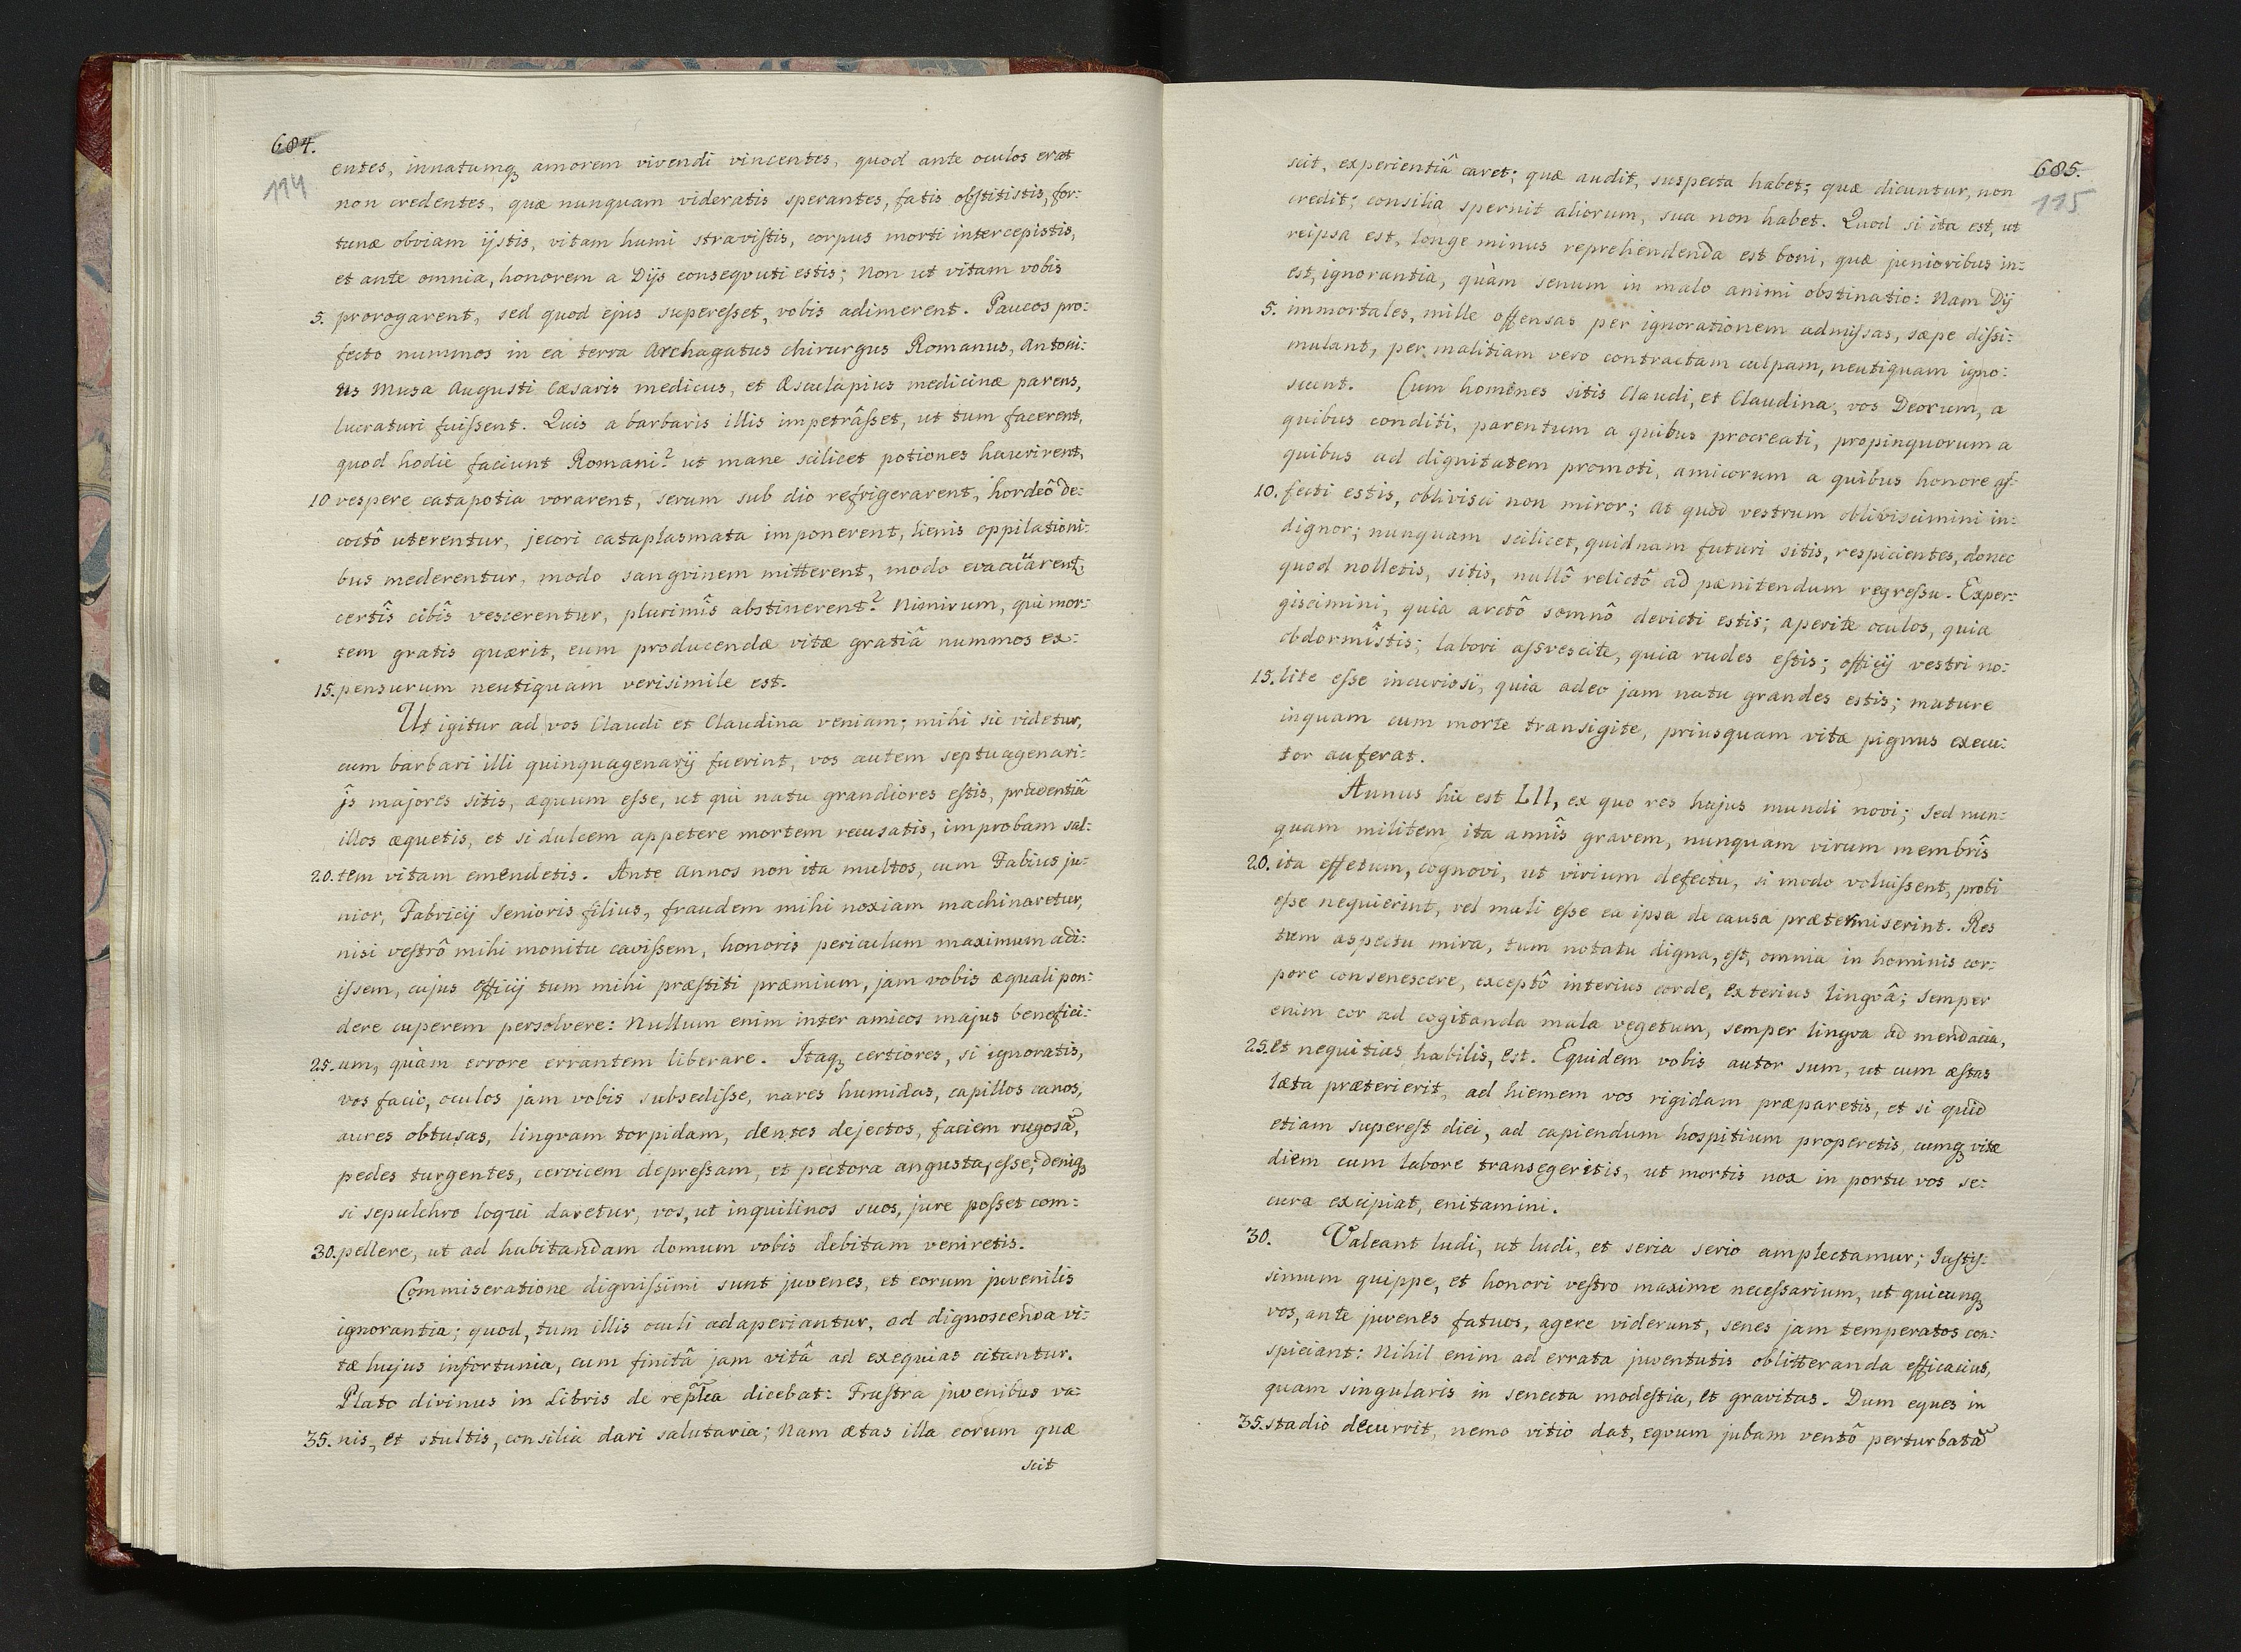 684.
114
entes, innatumq₃ amorem vivendi vincentes, quod ante oculos erat
non credentes, quæ nunquam videratis sperantes, fatis obſtitistis, for:
tunæ obviam ijstis, vitam humi straviſtis, corpus morti intercepistis,
et ante omnia, honorem a Dijs conseqvuti estis; Non ut vitam vobis
5. prorogarent, sed quod ejus supereſset, vobis adimerent. Paucos pro:
fecto nummos in ea terra Archagatus chirurgus Romanus, Antoni:
us Musa Augusti Cæsaris medicus, et Æsculapius medicinæ parens,
lucraturi fuiſsent. Quis a barbaris illis impetrâſset, ut tum facerent,
quod hodie faciunt Romani? ut mane scilicet potiones haurirent,
10 vespere catapotia vorarent, serum sub dio refrigerarent, hordeô de:
coctô uterentur, jecori cataplasmata imponerent, lienis oppilationi:
bus mederentur, modo sangvinem mitterent, modo evacuarent,
certîs cibîs vescerentur, plurimîs abstinerent? Nimirum, qui mor:
tem gratis quærit, eum producendæ vitæ gratiâ nummos ex:
15. pensurum neutiquam verisimile est.
Ut igitur ad vos Claudi et Claudina veniam; mihi sic videtur,
cum barbari illi quinquagenarij fuerint, vos autem septuagenari:
îjs majores sitis, æquum eſse, ut qui natu grandiores eſtis, prudentiâ
illos æquetis, et si dulcem appetere mortem recusatis, improbam sal:
20. tem vitam emendetis. Ante Annos non ita multos, cum Fabius ju:
nior, Fabricij Senioris filius, fraudem mihi noxiam machinaretur,
nisi veſtrô mihi monitu caviſsem, honoris periculum maximum adi:
iſsem, cujus officij tum mihi præſtiti præmium, jam vobis æquali pon:
dere cuperem persolvere: Nullum enim inter amicos majus benefici:
25. um, quàm errore errantem liberare. Itaq₃ certiores, si ignoratis,
vos facio, oculos jam vobis subsediſse, nares humidas, capillos canos,
aures obtusas, lingvam torpidam, dentes dejectos, faciem rugosã,
pedes turgentes, cervicem depreſsam, et pectora angusta, eſse; deniq₃
si sepulchro loqui daretur, vos, ut inquilinos suos, jure poſset com:
30. pellere, ut ad habitandam domum vobis debitam veniretis.
Commiseratione digniſsimi sunt juvenes, et eorum juvenilis
ignorantia; quod, tum illis oculi adaperiantur, ad dignoscenda vi:
tæ hujus infortunia, cum finitâ jam vitâ ad exequias citantur.
Plato divinus in Libris de rep̃lica dicebat: Fruſtra juvenibus va:
35. nis, et stultis, consilia dari salutaria; Nam ætas illa eorum quæ
scit
685.
115
scit, experientiâ caret; quæ audit, suspecta habet; quæ dicuntur, non
credit; consilia spernit aliorum, sua non habet. Quod si ita est, ut
reipsa est, longe minus reprehendenda est boni, quæ junioribus in:
est, ignorantia, quàm senum in malo animi obstinatio: Nam Dij
5. immortales, mille offensas per ignorationem admiſsas, sæpe diſsi:
mulant, per malitiam vero contractam culpam, neutiquam igno:
scunt. Cum homines sitis Claudi, et Claudina, vos Deorum, a
quibus conditi, parentum a quibus procreati, propinquorum a
quibus ad dignitatem promoti, amicorum a quibus honore af:
10. fecti estis, oblivisci non miror; At quod vestrum obliviscimini in:
dignor; nunquam scilicet, quidnam futuri sitis, respicientes, donec
quod nolletis, sitis, nullô relictô ad pænitendum regreſsu. Exper:
giscimini, quia arctô somnô devicti estis; aperite oculos, quia
obdormîstis; labori aſsvescite, quia rudes eſtis; officij vestri no:
15. lite eſse incurioſsi, quia adeo jam natu grandes estis; mature
inquam cum morte transigite, priusquam vitæ pignus execu:
tor auferat.
Annus hic est LII, ex quo res hujus mundi novi; Sed nun:
quam militem ita annîs gravem, nunquam virum membrîs
20. ita effetum, cognovi, ut virium defectu, si modo voluiſsent, probi
eſse nequierint, vel mali eſse ea ipsa de causa prætermiserint. Res
tum aspectu mira, tum notatu digna, eſt, omnia in hominis cor:
pore consenescere, exceptô interius corde, exterius lingvâ; Semper
enim cor ad cogitanda mala vegetum, semper lingva ad mendacia,
25. et nequitias habilis, est. Equidem vobis autor sum, ut cum æſtas
læta præterierit, ad hiemem vos rigidam præparetis, et si quid
etiam supereſt diei, ad capiendum hospitium properetis, cumq₃ vitæ
diem cum labore transegeritis, ut mortis nox in portu vos se:
cura excipiat, enitamini.
30. Valeant ludi, ut ludi, et seria serio amplectamur; Juſtiſ:
simum quippe, et honori veſtro maxime neceſsarium, ut quicunq₃
vos, ante juvenes fatuos, agere viderunt, senes jam temperatos con:
spiciant: Nihil enim ad errata juventutis oblitteranda efficacius,
quam singularis in senecta modeſtia, et gravitas. Dum eques in
35. stadio decurrit, nemo vitio dat, eqvum jubam ventô perturbatã